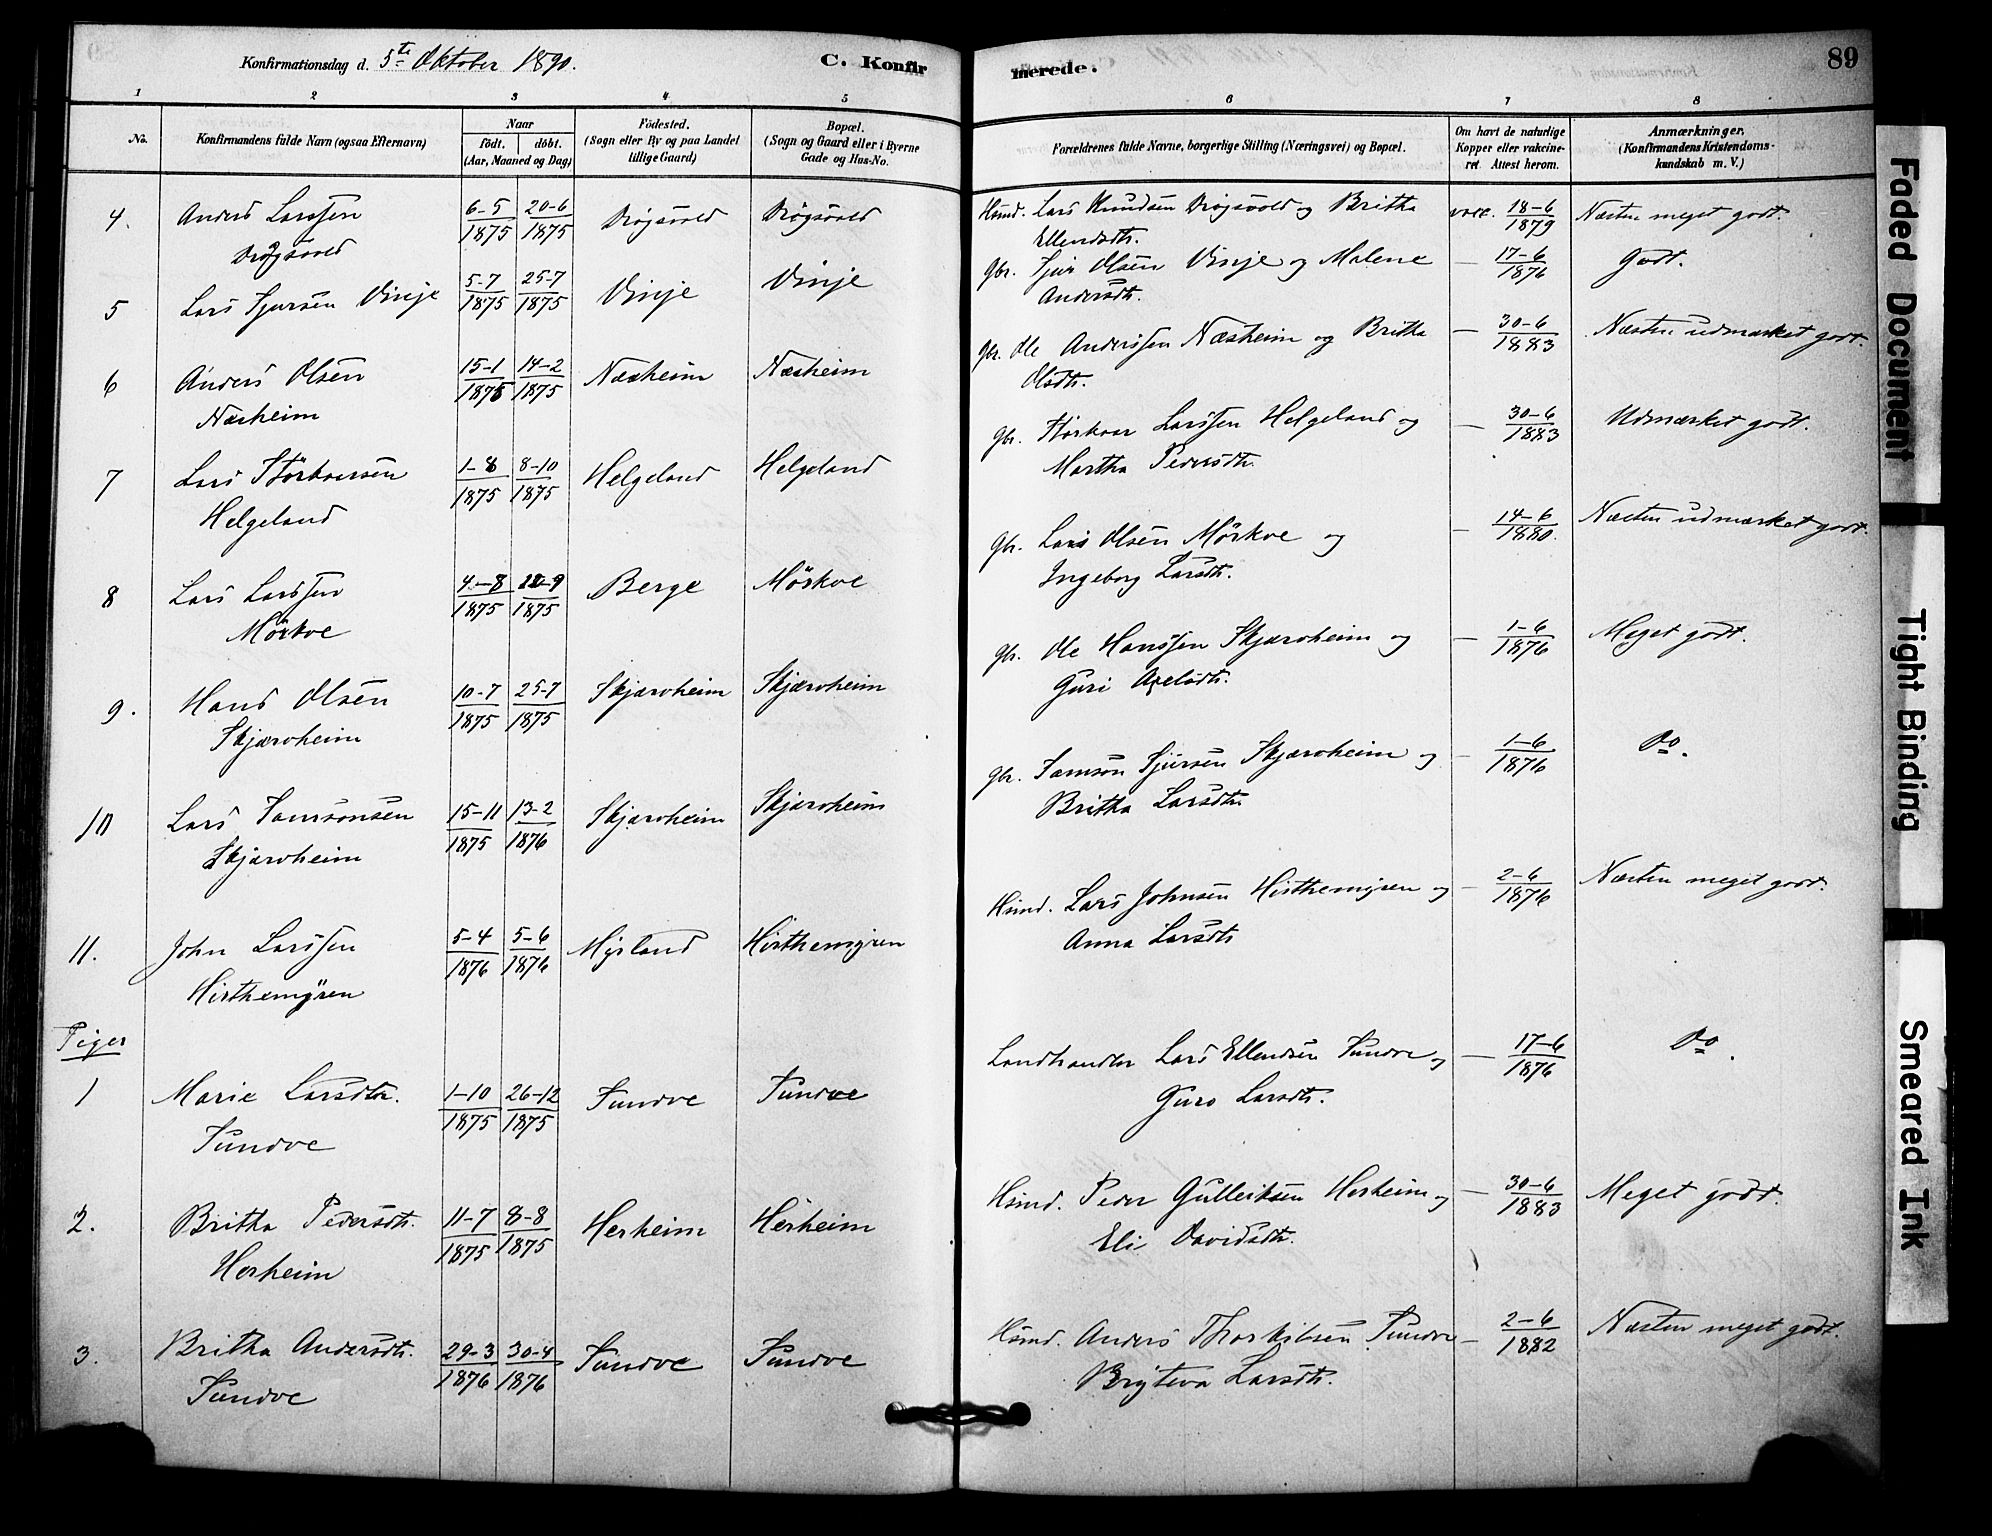 Konfirmationsdag d. 5te Oktober 1890.
C. Konfirmerede.
89
1 2 3 4 5 6 7 8
No.
Konfirmandens fulde Navn (ogsaa Efternavn)
Naar
födt. döbt.
(Aar, Maaned og Dag)
Födested.
(Sogn eller By og paa Landet
tillige Gaard)
Bopæl.
(Sogn og Gaard eller i Byerne
Gade og Hus-No.
Forældrenes fulde Navne, borgerlige Stilling (Næringsvei) og Bopæl.
Om havt de naturlige
Kopper eller vakcine-
ret. Attest herom.
Anmærkninger.
(Konfirmandens Kristendoms-
kundskab m. V.)
4. Anders Larssen 6-5 20-6 Drøgsvold Drøgsvold Hsmd. Lars Knudsen Drøgsvold og Britha vacc. 18-6 Næsten meget godt.
Drøgsvold 1875 1875 Ellendsdtr. 1879
5 Lars Sjursen Vinje 5-7 25-7 Vinje Vinje Gbr. Sjur Olsen Vinje og Malene – 17-6 Godt.
1875 1875 Andersdtr. 1876
6 Anders Olsen 15-1 14-2 Næsheim Næsheim Gbr. Ole Anderssen Næsheim og Britha – 30-6 Næsten udmærket godt.
Næsheim 1875 1875 Olsdtr. 1883
7 Lars Størkorsen 1-8 8-10 Helgeland Helgeland Gbr. Størkor Larssen Helgeland og – 30-6 Udmærket godt.
Helgeland 1875 1875 Martha Pedersdtr. 1883
8 Lars Larssen 4-8 Berge Mörkve Gbr. Lars Olsen Mörkve og – 14-6 Næsten udmærket godt.
Mörkve 1875 1875 Ingeborg Larsdtr. 1880.
9. Hans Olsen 10-7 25-7 Skjærvheim Skjærvheim Gbr. Ole Hanssen Skjærvheim og – 1-6 Meget godt.
Skjærvheim 1875 1875 Guri Axelsdtr. 1876
10 Lars Samsonsen 15-11 13-2 Skjærvheim Skjærvheim Gbr. Samson Sjursen Skjærvheim og – 1-6 Do.
Skjærvheim 1875 1876 Britha Larsdtr. 1876
11. John Larssen 5-4 5-6 Myrland Hirthemyren Hsmd. Lars Johnsen Hirthemyren og – 2-6 Næsten meget godt.
Hirthemyren 1876 1876 Anna Larsdtr 1876
Piger
1 Marie Larsdtr. 1-10 26-12 Sundve Sundve Landhandler Lars Ellendsen Sundve og – 17-6 Do.
Sundve 1875 1875 Guro Larsdtr. 1876
2. Britha Pedersdtr. 11-7 8-8 Herheim Herheim Hsmd. Peder Gulleiksen Herheim og – 30-6 Meget godt.
Herheim 1875 1875 Eli Davidsdtr. 1883
3. Britha Andersdtr. 29-3 30-4 Sundve Sundve Hsmd. Anders Thorkilsen Sundve – 2-6 Næsten meget godt.
Sundve 1876 1876 Bryteva Larsdtr. 1882
Faded Document
Tight Binding
Smeared Ink